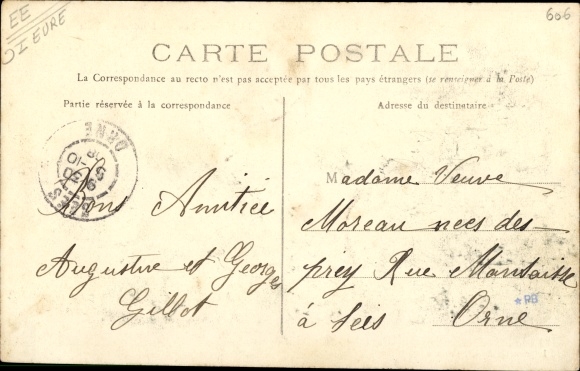 EE
OI EURE
606
CARTE POSTALE
La Correspondance au recto n'est pas acceptée par tous les pays étrangers (se renseigner à la Poste)
Partie réservée à la correspondance
Adresse du destinataire
ORNE
Bons Amitiée
Augustine et Georges
Gillot
Madame Veuve
Moreau nees des-
prey Rue
à Sées Orne
RB